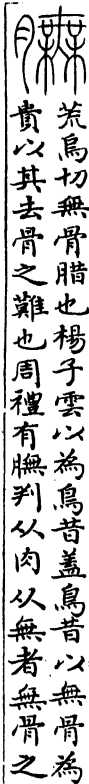 膴
荒烏切無骨腊也楊子雲以為鳥昔蓋鳥昔以無骨為
貴以其去骨之難也周禮有膴判从肉从無者無骨之